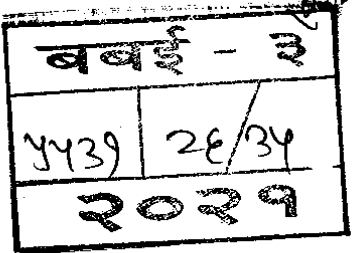 बबई - ३
५५३१ २६/३५
२०२१